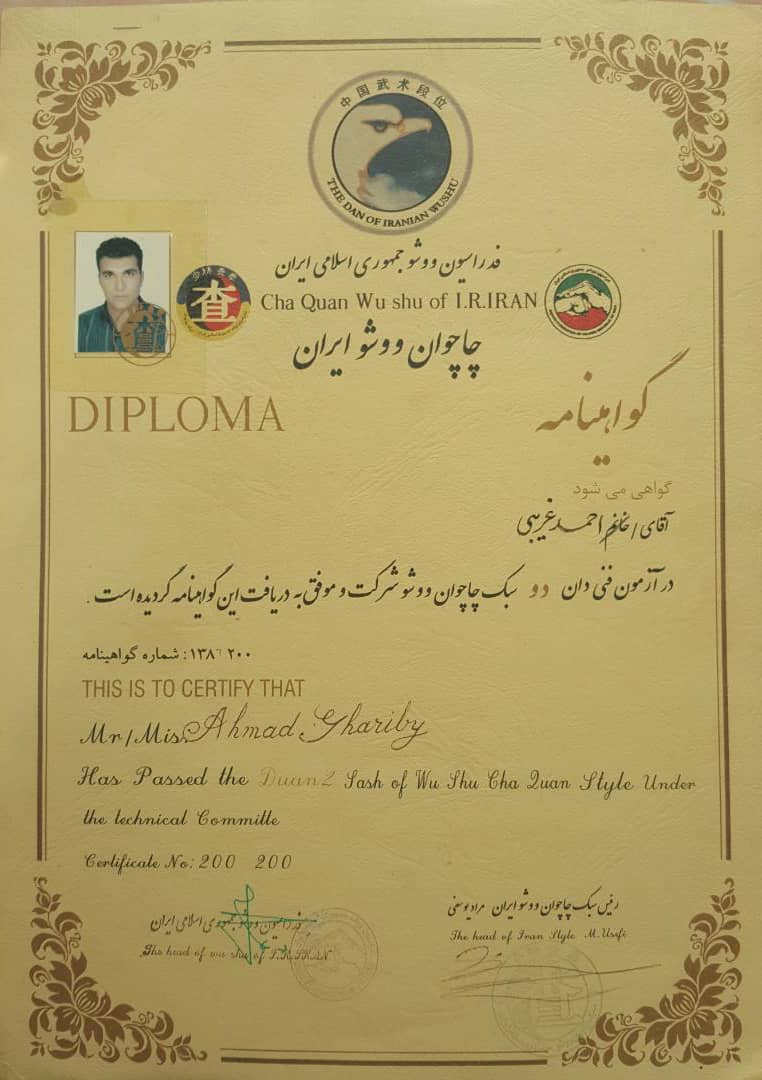 中国武术段位
THE DAN OF IRANIAN WUSHU
فدراسیون ووشو جمهوری اسلامی ایران
查
Cha Quan Wu shu of I.R.IRAN
چاچوان ووشو ایران
DIPLOMA
گواهینامه
گواهی می شود
آقای / خانم احمد غریبی
در آزمون فنی دان دو سبک چاچوان ووشو شرکت و موفق به دریافت این گواهینامه گردیده است .
شماره گواهینامه :
THIS IS TO CERTIFY THAT
Mr/Miss Ahmad Ghariby
Has Passed the Duan 2 Sash of Wu Shu Cha Quan Style Under
the technical Committe
Certificate No: 200 200
رئیس سبک چاچوان ووشو ایران مراد یوسفی
The head of Iran Style M.Usefi
فدراسیون ووشو جمهوری اسلامی ایران
The head of wu shu of I.R.IRAN